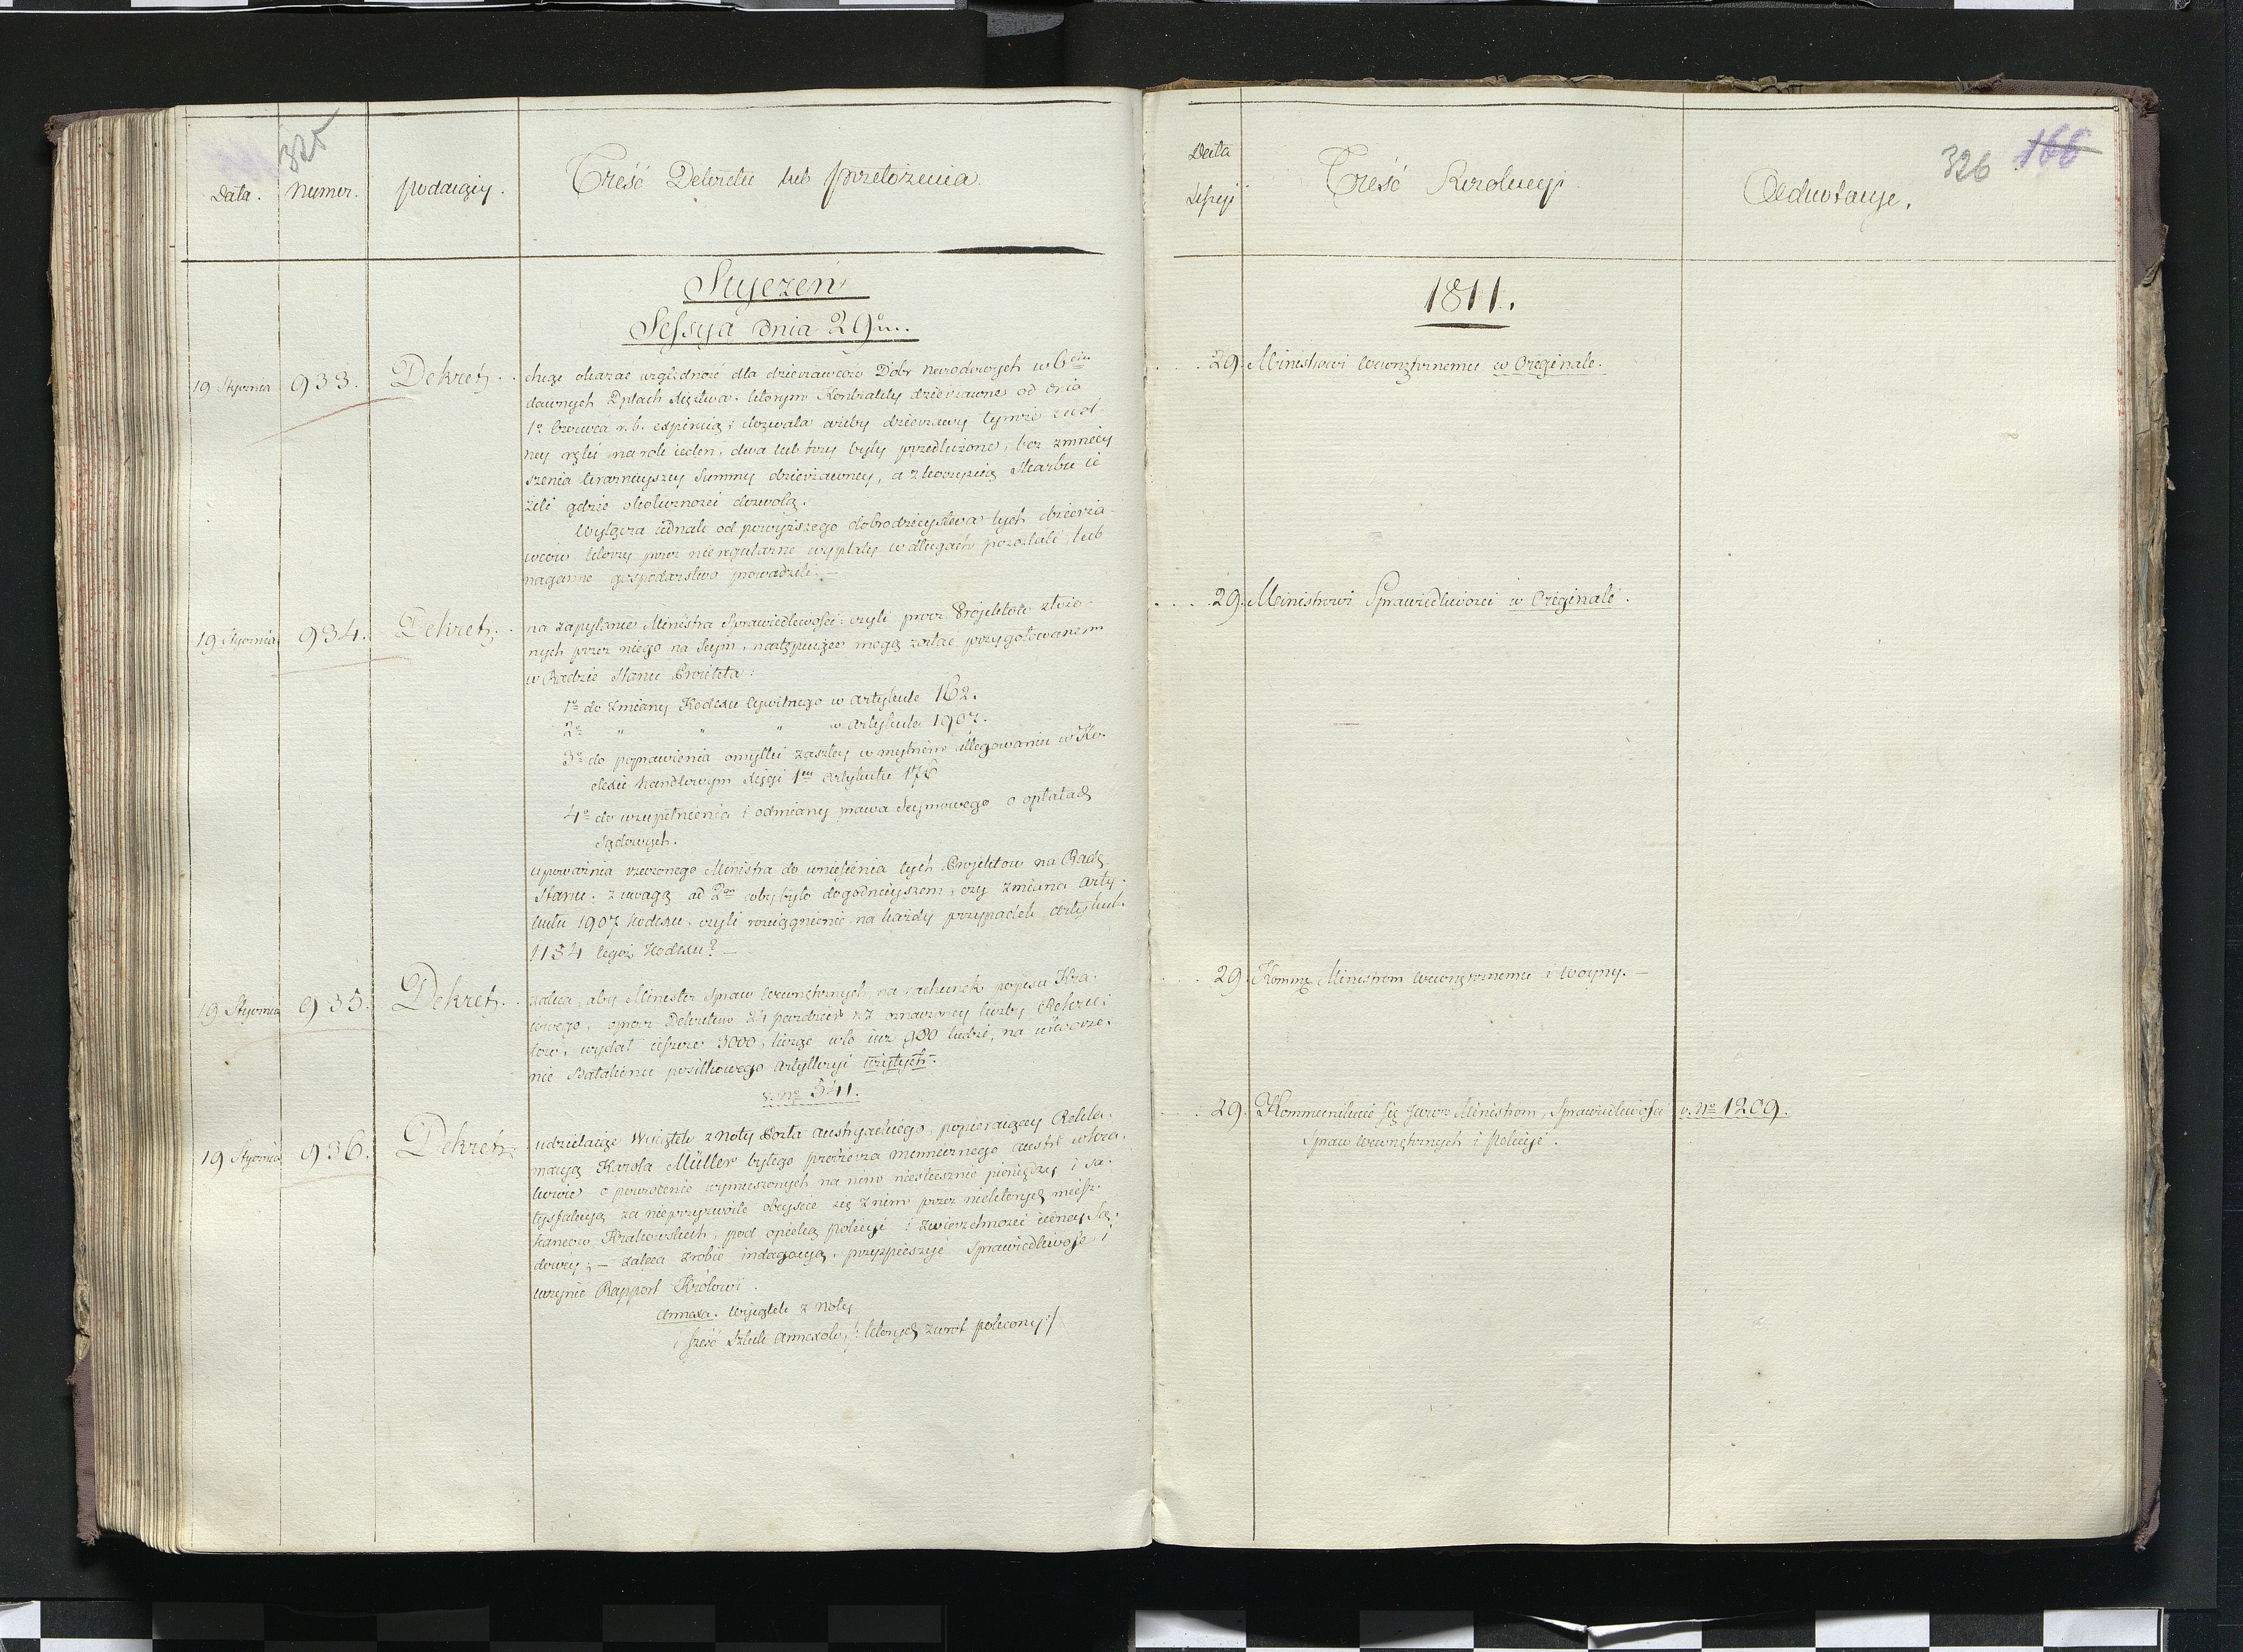 325
Data.
Numer.
podaiący.
Treść Dekretu lub przełożenia.
Styczeń
Sessya dnia 29º
19 Stycznia 933. Dekret,
chcąc okazać względność dla dzierżawców Dóbr Narodowych w 6ciu
dawnych Dptach Xięztwa, którym Kontrakty dzierżawne od dnia
1º Czerwca r. b. expiruią; dozwala ażeby dzierżawy tymże
na rok ieden, dwa lub trzy były przedłużone, bez zmniey
szenia teraznieyszey Summy dzierżawney, a z korzyścią Skarbu ie
żeli gdzie okoliczności dozwolą.
Wyłącza iednak od powyższego dobrodzieystwa tych dzierża
wców którzy przez nieregularne wypłaty w długach pozostali, lub
naganne gospodarstwo prowadzili.
19 Stycznia 934. Dekret,
na zapytanie Ministra Sprawiedliwości: czyli prócz Projektów złożo
nych przez niego na Seym, następuiące mogą zostać przygotowanemi
w Radzie Stanu Proiekta:
1º do zmiany Kodexu Cywilnego w artykule 162.
2º " " " w artykule 1907.
3º do poprawienia omyłki zaszłey w mylnem allegowaniu w Ko-
dexie handlowym Xięgi 1ey artykułu 176
4º do uzupełnienia i odmiany prawa Seymowego o opłatach
Sądowych.
upoważnia rzeczonego Ministra do wniesienia tych Projektów na Radę
Stanu; z uwagą ad 2um coby było dogodnieyszem, czy zmiana Arty-
kułu 1907 Kodexu, czyli rozciągnienie na każdy przypadek artykuł.
1154 tegoż Kodexu? —
19 Stycznia 935. Dekret,
zaleca, aby Minister Spraw Wewnętrznych, na rachunek popisu Kra-
iowego, oprócz Dekretem 24 październ. oznaczoney liczby Rekru-
tów, wydał ieszcze 3000, licząc w to iuż 900 ludzi, na utworze-
nie Batalionu posiłkowego Artylleryi wziętych.
v. Nº 541.
19 Stycznia 936. Dekret,
udzielaiąc Wyiątek z Noty Posła Austryackiego, popieraiącey Rekla-
macyą Karola Müller byłego probierza menniczego Austr: w Kra-
kowie o powrócenie wymuszonych na nim niesłusznie pieniędzy i sa-
tysfakcyą za nieprzyzwoite obeyście się z nim przez niektórych miesz-
kańców Krakowskich, pod opieką policyi i zwierzchności
dowey; — zaleca zrobić indagacyą, przyspieszyć Sprawiedliwość i
uczynić Rapport Królowi.
Annexa. Wyiątek z Noty
sześć Sztuk annexów, /: których zwrot polecony :/
Data
Sessyi
Treść Rezolucyi.
Adnotacye.
326
166
1811.
29. Ministrowi Wewnętrznemu w Oryginale.
29. Ministrowi Sprawiedliwości w Oryginale.
29. Kommę Ministrom Wewnętrznemu i Woyny. —
29. Kommunikuie się Ministrom, Sprawiedliwości v. Nº 1209.
Spraw Wewnętrznych i Policyi.